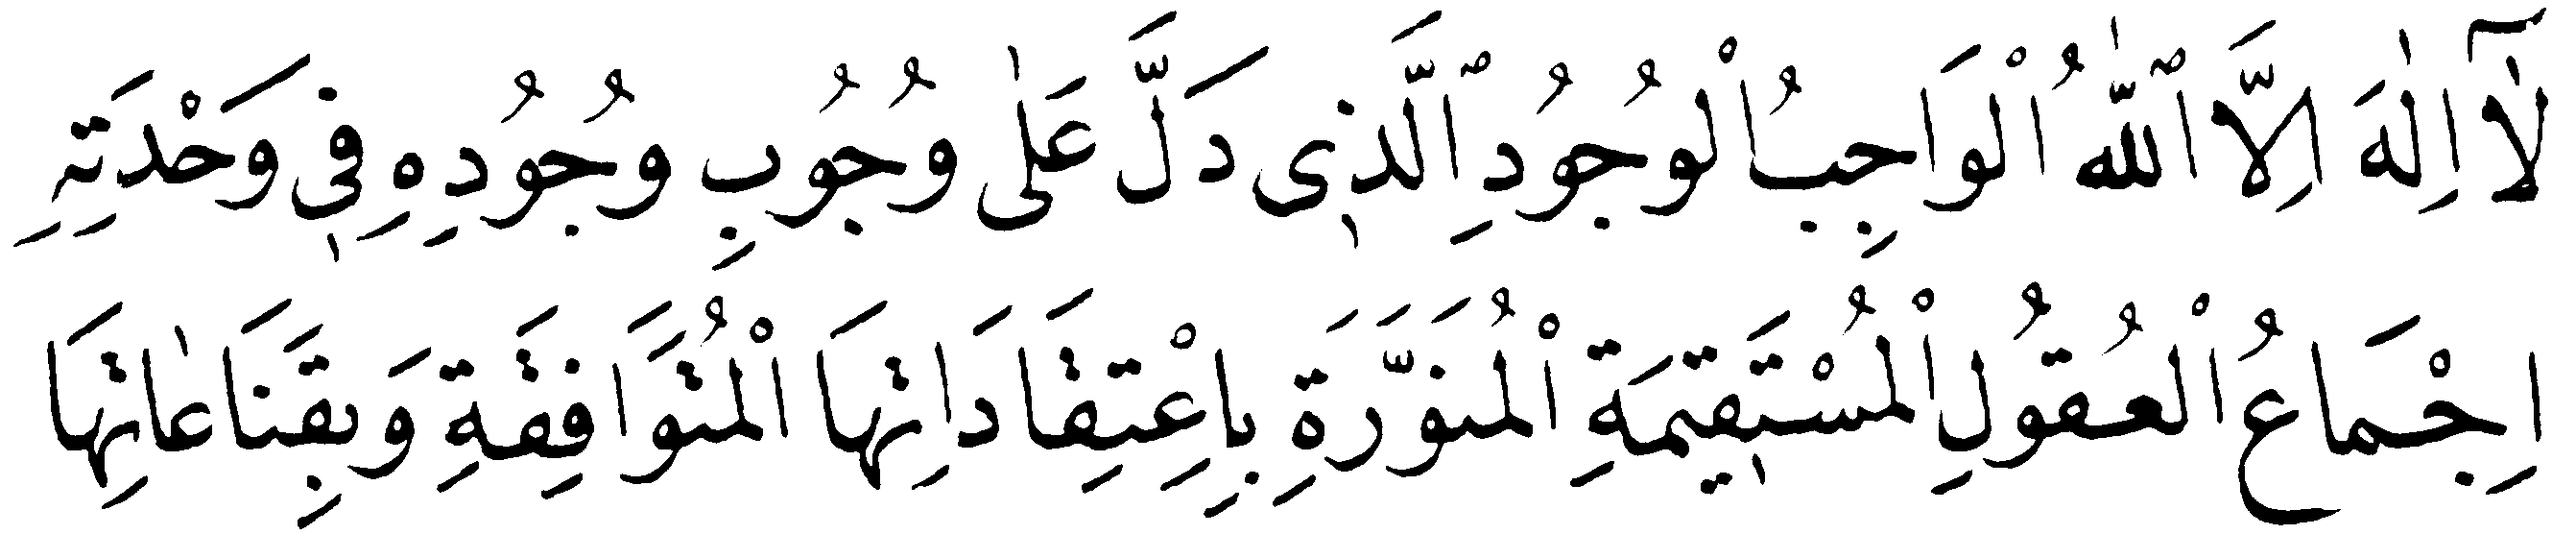 لَٓا اِلٰهَ اِلَّا ٱللّٰهُ ٱلْوَاجِبُ الْوُجُودِ ٱلَّذٖى دَلَّ عَلٰى وُجُوبِ وُجُودِهٖ فٖى وَحْدَتِهِ
اِجْمَاعُ الْعُقُولِ الْمُسْتَقٖيمَةِ الْمُنَوَّرَةِ بِاِعْتِقَادَاتِهَا الْمُتَوَافِقَةِ وَبِقَنَاعَاتِهَا